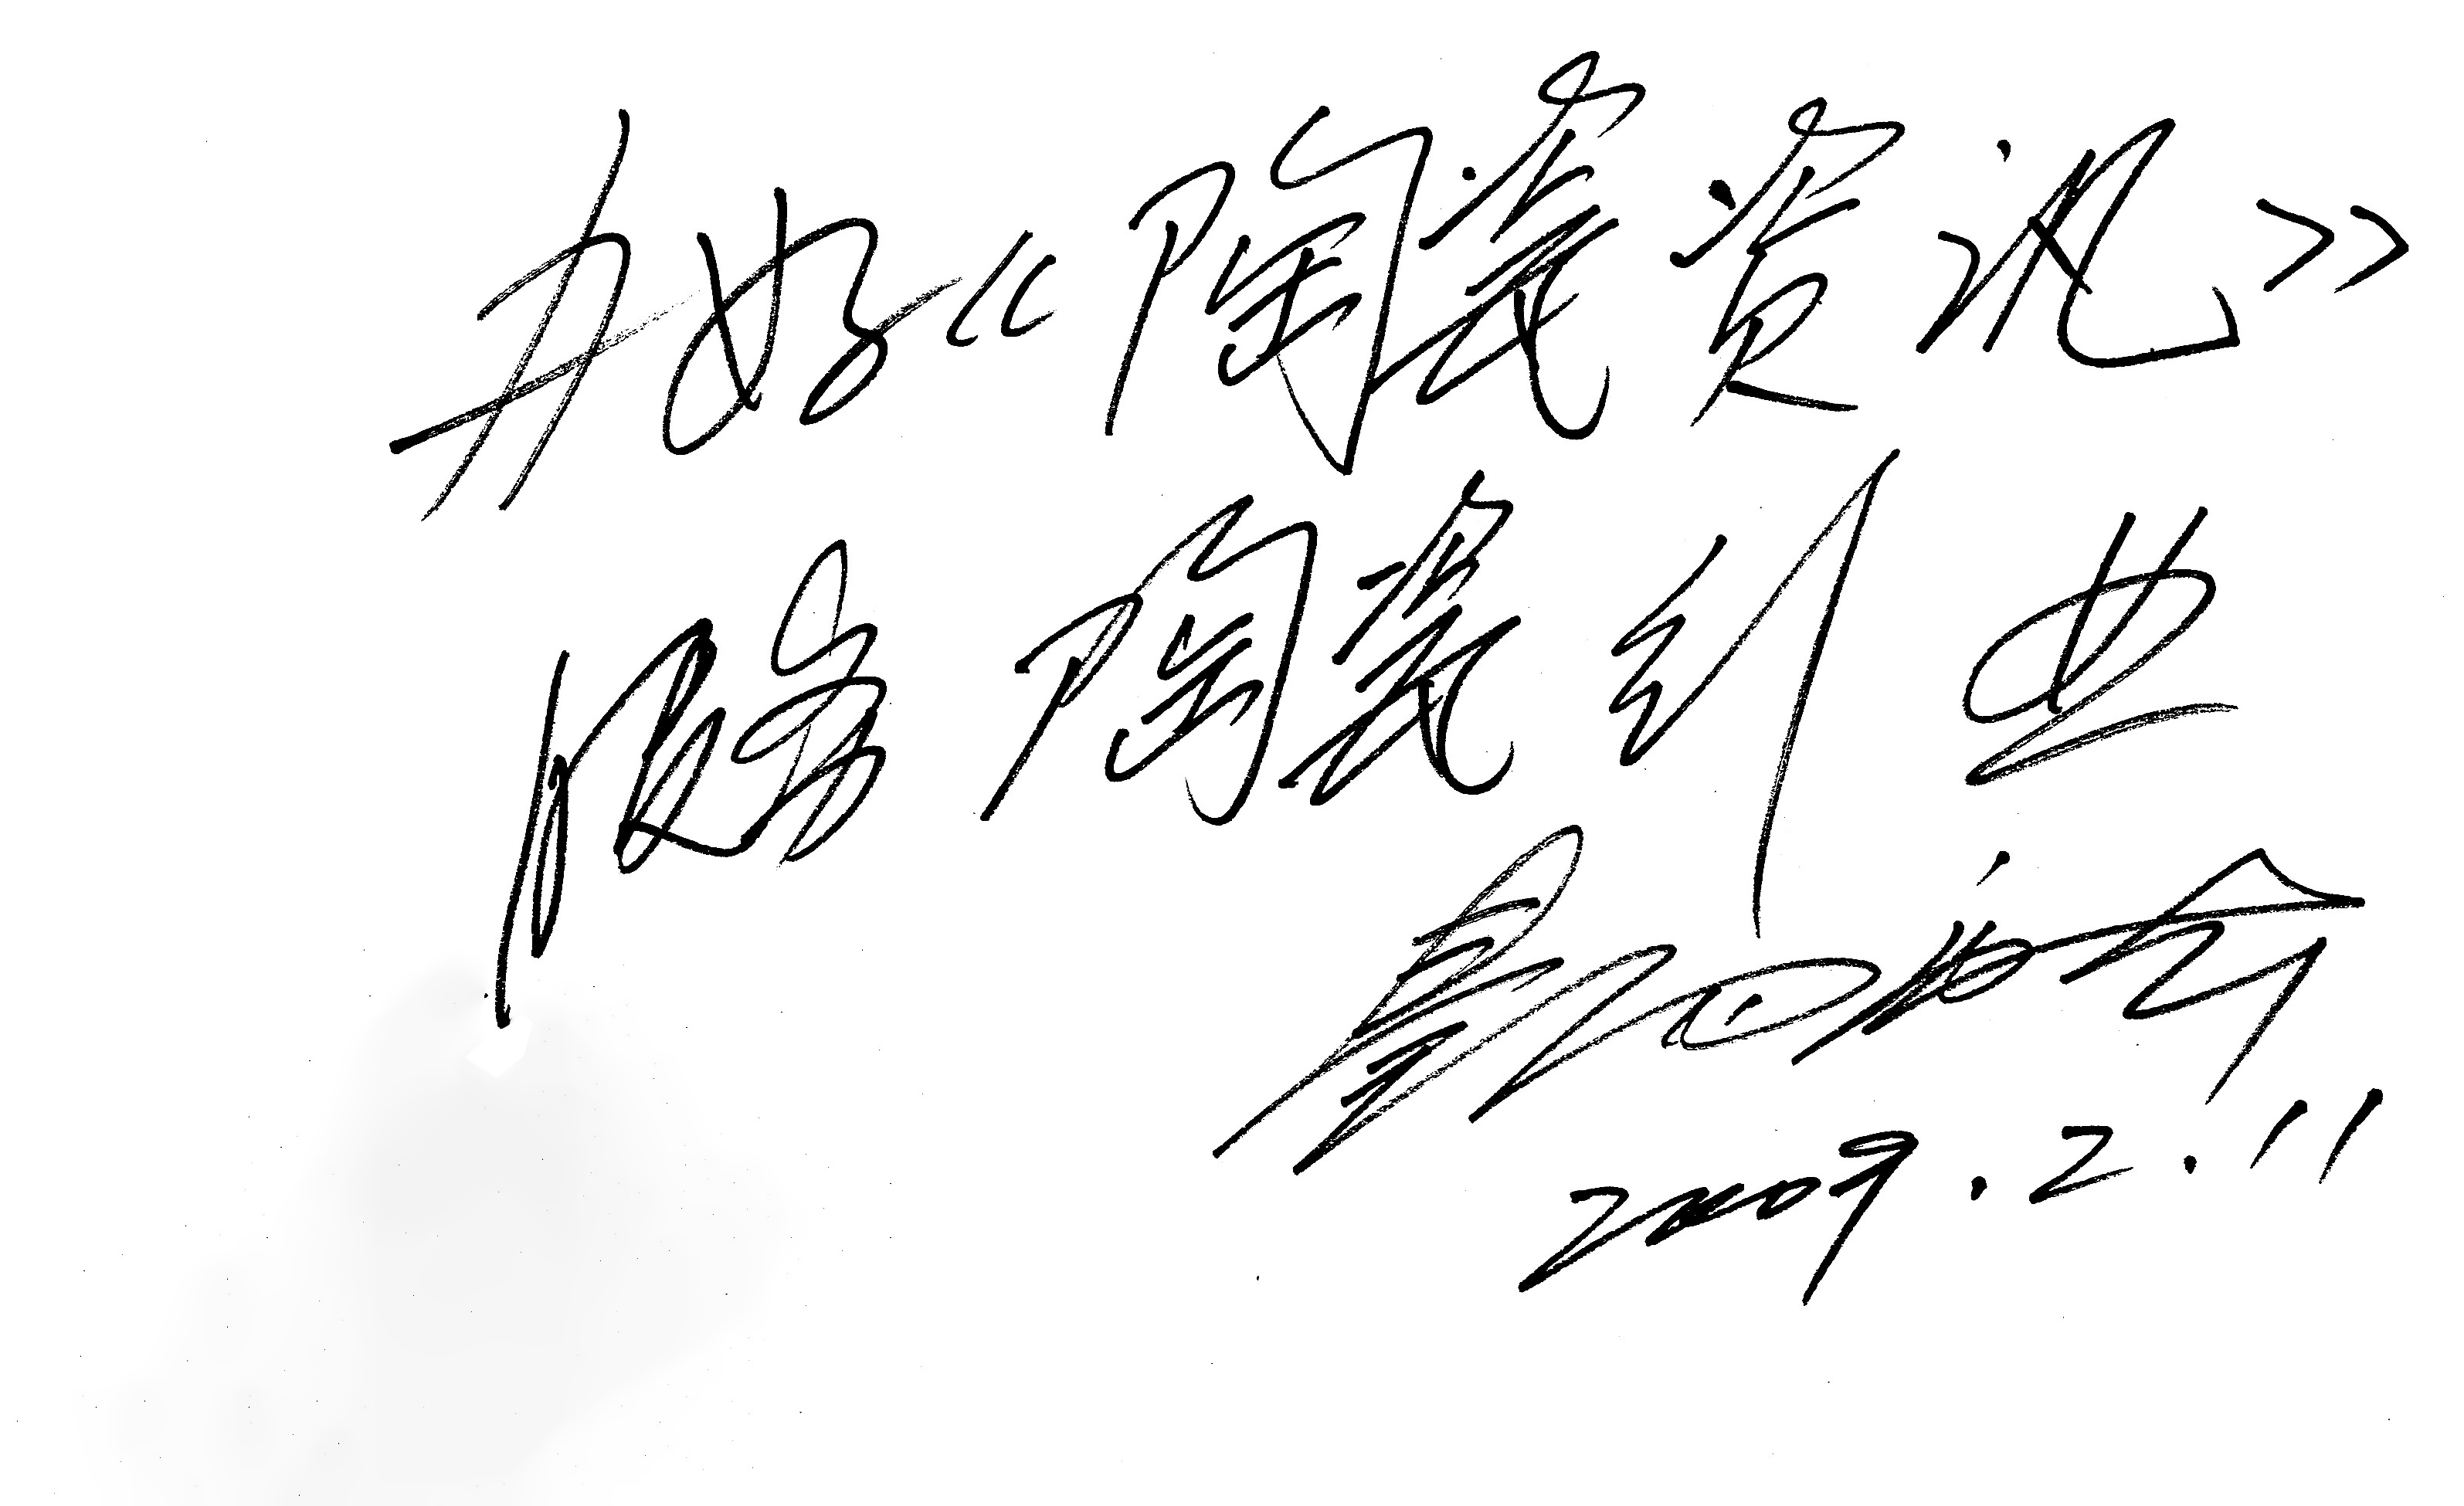 办好《陶瓷资讯》
服务陶瓷行业
2009.2.11